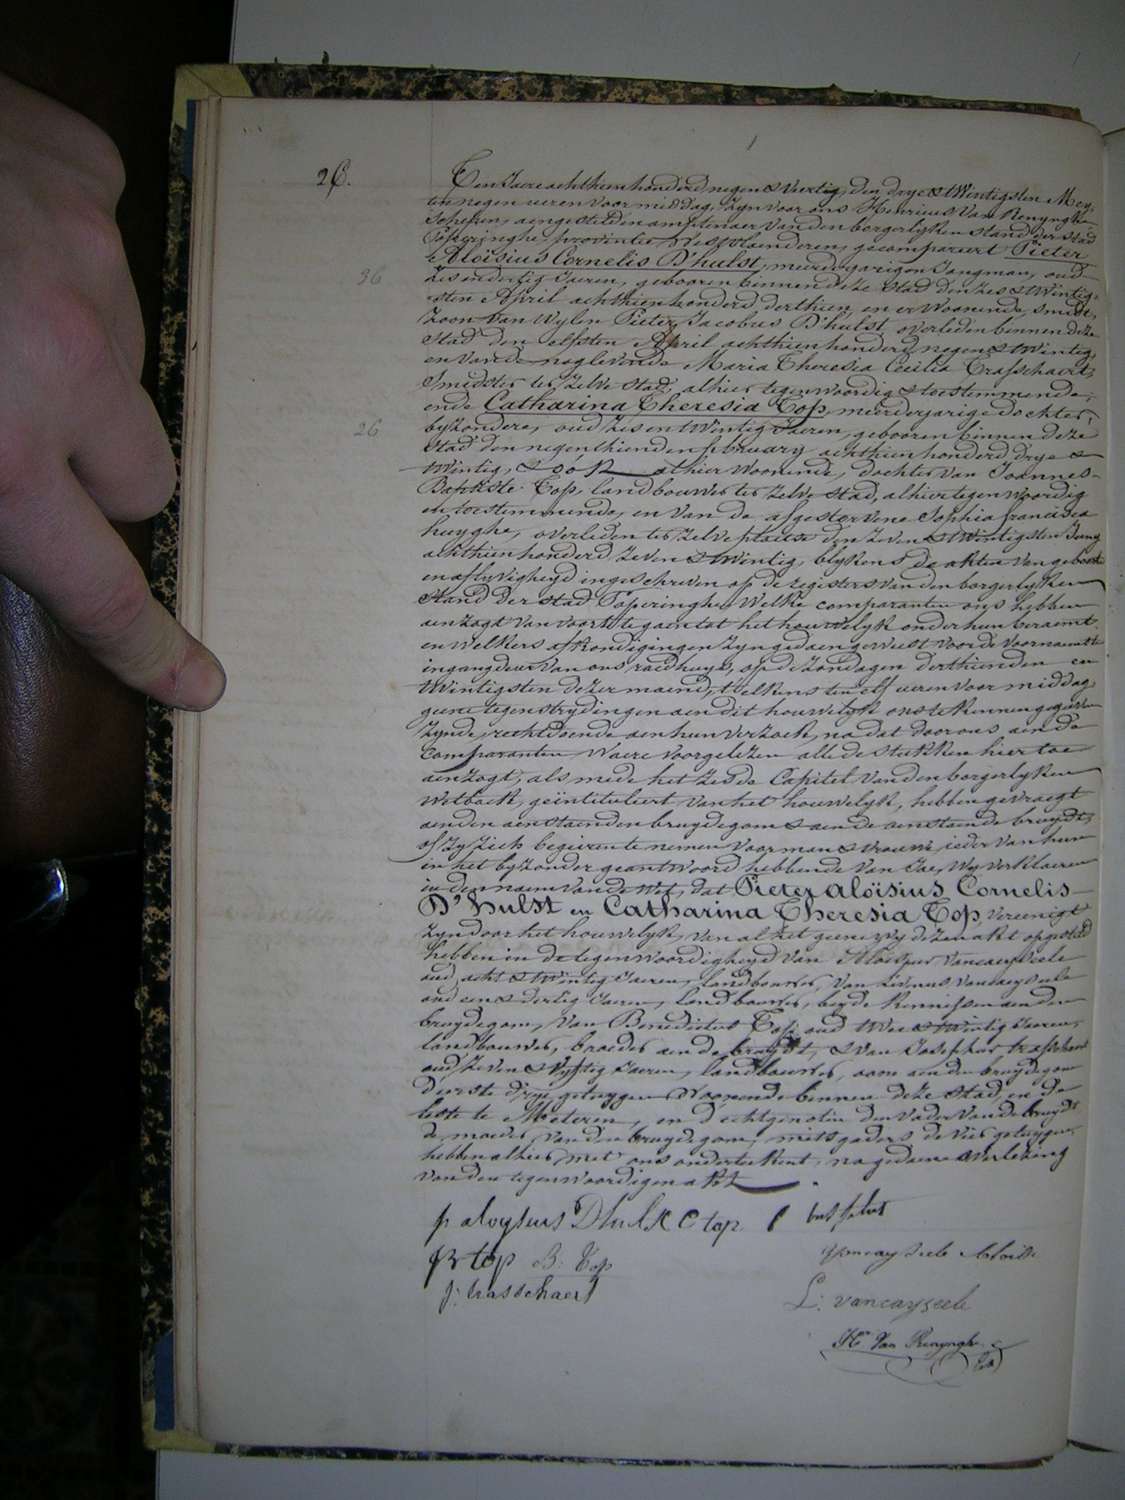 26.
Ten Jaere achthien honderd negen & Veertig, den drye & twintigsten Mey,
ten negen ueren voormiddag, zyn voor ons Henricus Van Renynghe
Schepen, aengestelden amptenaer van den borgerlyken stand der stad
Poperinghe, provintie Westvlaenderen, gecompareert Pieter
Aloïsius Cornelis D'hulst, meerderjarigen Jongman, oud
36
zes en dertig Jaeren, gebooren binnen deze Stad den zes & twintig-
sten April achthien honderd derthien, en er woonende, smid,
Zoon van wylen Pieter Jacobus D'hulst, overleden binnen deze
Stad den elfsten April achthien honderd negen & twintig,
en van de nog levende Maria Theresia Cecilia Trasschaert,
Smedster ter zelve stad, alhier tegenwoordig & toestemmende,
ende Catharina Theresia Top, meerderjarige dochter,
26
byzondere, oud zes en twintig Jaeren, gebooren binnen deze
Stad den negenthienden february achthien honderd drye &
twintig, & ook alhier woonende, dochter van Joannes-
Baptiste Top, landbouwer ter zelve stad, alhier tegenwoordig
en toestemmende, en van de afgestorvene Sophia francisca
huyghe, overleden ter zelve plaetse den zeven & twintigsten Juny
achthien honderd zeven & twintig, blykens de akten van geboorte
en aflyvigheyd ingeschreven op de registers van den borgerlyken
Stand der stad Poperinghe. Welke comparanten ons hebben
aenzogt van voorts te gaen tot het houwelyk onder hun beraemt
en welkers afkondigingen zyn gedaen geweest voor de voornaemste
ingangdeur van ons raedhuys, op de zondagen derthienden en
twintigsten dezer maend, t'elkens ten elf ueren voormiddag,
geene tegenstrydingen aen dit houwelyk ons te kennen gegeven
zynde, rechtdoende aen hun verzoek, na dat door ons aen de
comparanten waere voorgelezen alle de stukken hier toe
aenzogt, als mede het zesde Capitel van den borgerlyken
Wetboek, geïntituleert van het houwelyk, hebben gevraegt
aen den aenstaenden bruydegom & aen de aenstaende bruydt,
of zy zich begeeren te nemen voor man & vrouw, ieder van hun
in het byzonder geantwoord hebbende van Jae, Wy verklaeren
in den naem van de wet, dat Pieter Aloïsius Cornelis
D'hulst en Catharina Theresia Top, vereenigt
zyn door het houwelyk, van al het geene wy dezen akt opgesteld
hebben in de tegenwoordigheyd van Aloisius Vancayseele
oud acht & twintig Jaeren, landbouwer, van Livinus vancayseele
oud een & dertig Jaeren, landbouwer, beyde kennissen aen den
bruydegom, van Benedictus Top, oud twee & twintig Jaeren,
landbouwer, broeder aen de bruydt, & van Josephus trasschaert
oud zeven & vyftig Jaeren, landbouwer, oom aen den bruydegom
d'eerste drye getuygen woonende binnen deze stad, en de
leste te Meteren, en d'echtgenoten den Vader van de bruydt
de moeder van den bruydegom, mitsgaders de vier getuygen
hebben alhier, met ons onderteekent, na gedaene Overlezing
van den tegenwoordigen akt
p aloysius Dhulst C top
P J B top B: Top
vancayseele Aloise
j: trasschaert
L: vancayseele
Hri Van Renynghe